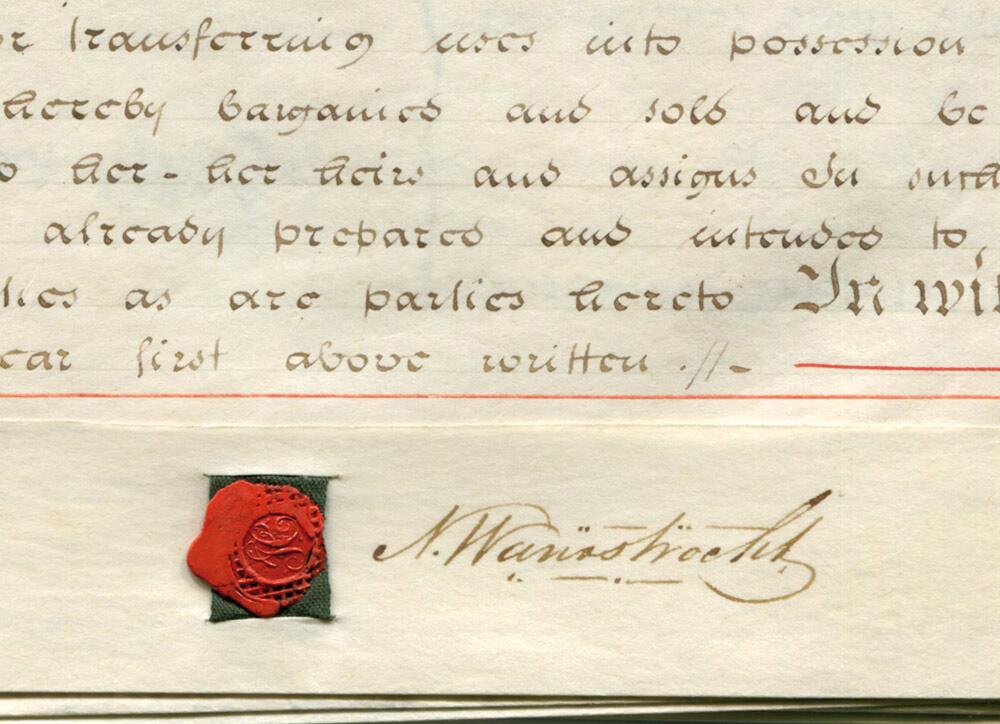 or transferring uses into possession
hereby bargained and sold and be
to her - her heirs and assigns In such
already prepared and intended to
parties as are parties hereto In wit
year first above written .//-
N. Wanostrocht